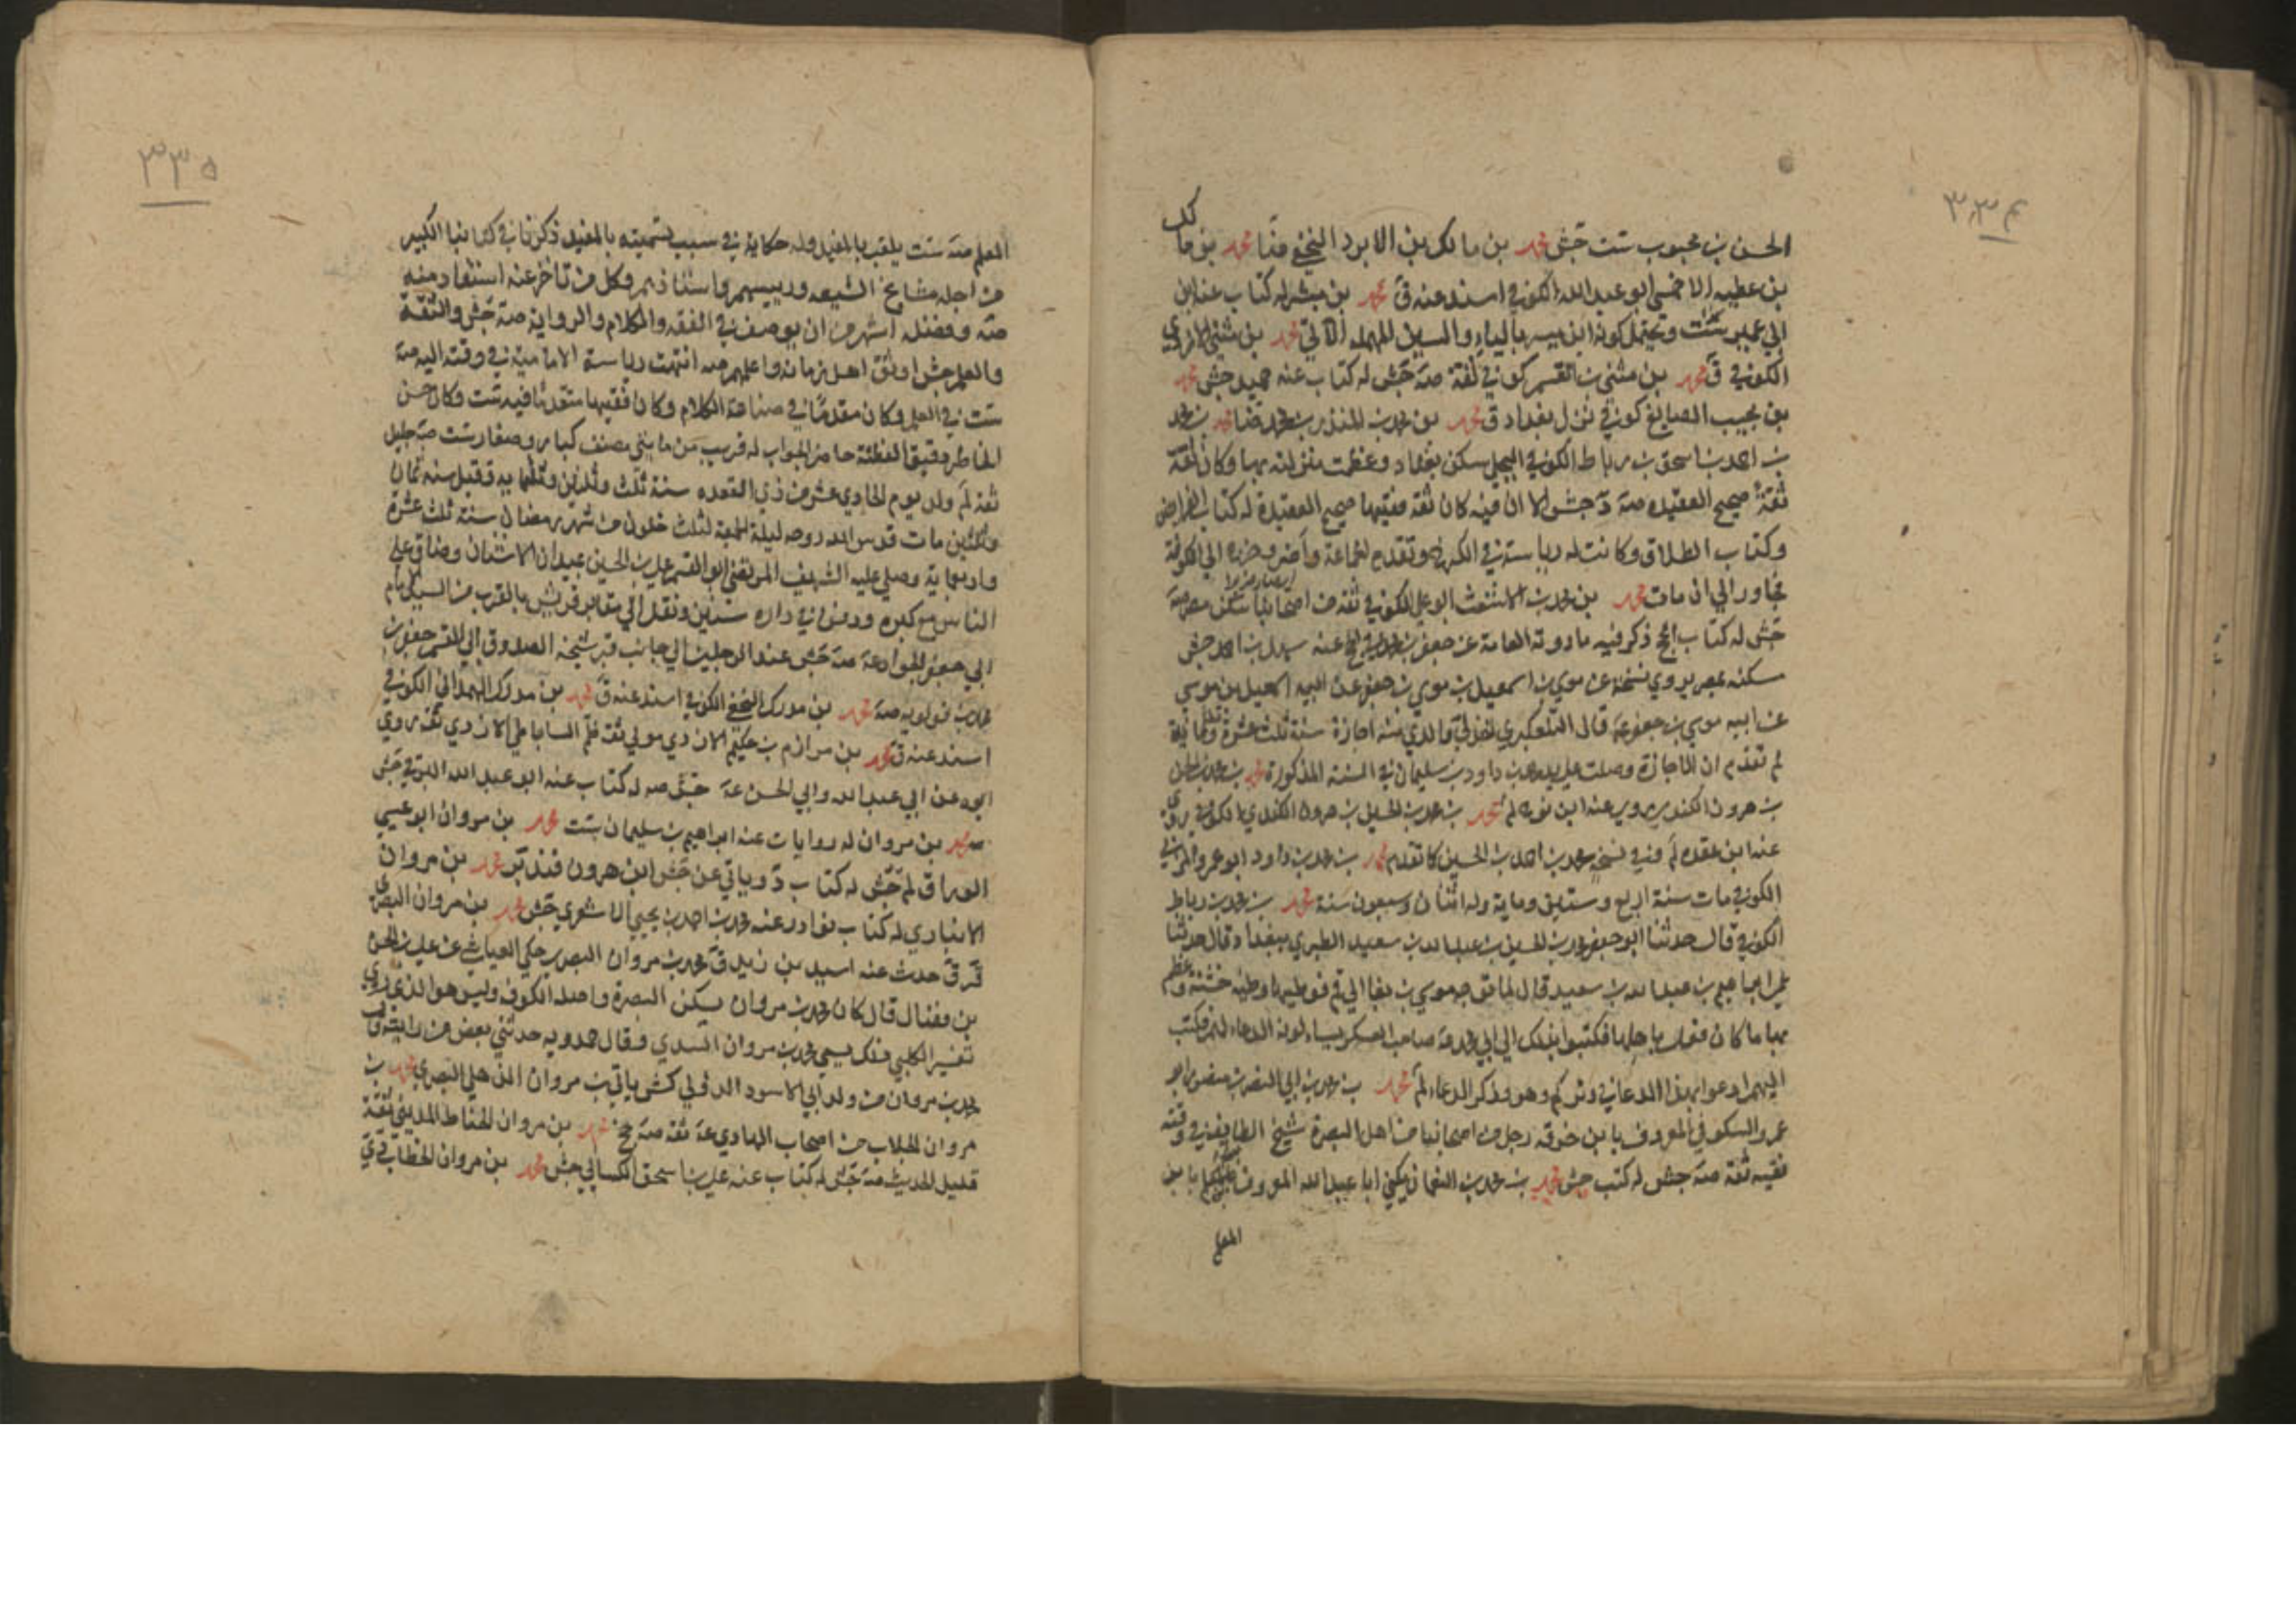 ٣٣٤
الحسن بن محبوب ست جش محمد بن مالك بن الابرد النخعي محمد بن مالك
بن عطيه الاحمسي ابو عبدالله الكوفي اسند عنه ق محمد بن مبشر له كتاب عنه ابن
ابي عمير ست ويحتمل كونه ابن ميسر بالياء والسين المهمله الآتي محمد بن مثنى الازدي
الكوفي ق محمد بن مثنى بن القسم كوفي ثقة صه جش له كتاب عنه حميد جش محمد
بن مجيب الصايغ كوفي نزل بغداد ق محمد بن محمد بن المنذر بن محمد بن محمد
بن احمد بن اسحق بن رباط الكوفي البجلي سكن بغداد وعظمت منزلته بها وكان ثقة
ثقة صحيح العقيده صه د جش الا ان فيه كان ثقة فقيها صحيح العقيدة له كتاب الفرايض
وكتاب الطلاق وكانت له رياسة في الكوفة وتقدم لجماعة وآخر خروجه الى الكوفة
مجاور الى ان مات محمد بن محمد بن الاشعث ابو علي الكوفي ثقه من اصحابنا سكن مصر صه
جش له كتاب الحج ذكر فيه ما روته العامة عن جعفر بن محمد في الحج عنه سهل بن احمد جش
سكنه بمصر يروي نسخة عن موسى بن اسمعيل بن موسى بن جعفر عن ابيه اسمعيل بن موسى
عن ابيه موسى بن جعفر عه قال التلعكبري اخذ لي والدي منه اجازة سنة ثلث عشرة وثلثماية
لم تقدم ان الاجازة وصلت على يد محمد بن داود بن سليمان في السنة المذكورة محمد بن محمد بن الحسن
بن هرون الكندي يروي عنه ابن نوح لم محمد بن محمد بن الحسين بن هرون الكندي الكوفي روى
عنه ابن عقده لم وفي نسخة محمد بن احمد بن الحسين كما تقدم محمد بن محمد بن داود ابو عمرو المرهبي
الكوفي مات سنة اربع وستين وماية وله اثنان وسبعون سنة محمد بن محمد بن رباط
الكوفي قال حدثنا ابو جعفر محمد بن الحسين بن عبدالله بن سعيد الطبري ببغداد قال حدثنا
ابراهيم بن عبدالله بن سعيد قال لما توجه موسى بن بغا الى قم فوطيها وطية خشنة وعظم
بها ما كان فعل باهلها فكتبوا بذلك الى ابي محمد عه صاحب العسكر يسئلونه الدعاء لهم فكتب
اليهم ادعوا بهذا الدعا في وتركم وهو وذكر الدعاء لم محمد بن محمد بن ابي النصر بن منصور ابو
عمرو السكوني المعروف بابن خرقه رجل من اصحابنا من اهل البصرة شيخ الطايفة في وقته
فقيه ثقة صه جش له كتب جش محمد بن محمد بن النعمان يكنى ابا عبدالله المعروف بابن
المعلم
٣٣٥
المعلم صه ست يلقب بالمفيد وله حكاية في سبب تسميته بالمفيد ذكرناها في كتابنا الكبير
من اجله مشايخ الشيعه ورييسهم واستاذهم وكل من تاخر عنه استفاد منه
صه وفضله اشهر من ان يوصف في الفقه والكلام والرواية صه جش والثقة
والعلم جش اوثق اهل زمانه واعلمهم صه انتهت رياسة الاماميه في وقته اليه صه
ست في العلم وكان مقدما في صناعة الكلام وكان فقيها متقدما فيه ست وكان حسن
الخاطر دقيق الفطنة حاضر الجواب له قريب من مايتي مصنف كبار وصغار ست صه جليل
ثقه لم ولد يوم الحادي عشر من ذي القعده سنة ثلث وثلثين وثلثمايه وقيل سنه ثمان
وثلثين مات قدس الله روحه ليلة الجمعة لثلث خلون من شهر رمضان سنة ثلث عشرة
واربعماية وصلى عليه الشريف المرتضى ابو القسم علي بن الحسين بميدان الاشنان وضاق على
الناس مع كبره ودفن في داره سنين ونقل الى مقابر قريش بالقرب من السيد الامام
ابي جعفر الجواد عه صه جش عند الرجلين الى جانب قبر شيخه الصدوق ابي القسم جعفر بن
محمد بن قولويه صه محمد بن مدرك النخعي الكوفي اسند عنه ق محمد بن مدرك الهمداني الكوفي
اسند عنه ق محمد بن مرازم بن حكيم الازدي مولى ثقه لم الساباطي الازدي ثقه روى
ابوه عن ابي عبدالله وابي الحسن عه جش صه له كتاب عنه ابو عبدالله البرقي جش
محمد بن مروان له روايات عنه ابراهيم بن سليمان ست محمد بن مروان ابو عيسى
الوراق لم جش له كتاب د وياتي عن جش ابن هرون محمد بن مروان
الانباري له كتاب نوادر عنه محمد بن احمد بن يحيى الاشعري جش محمد بن مروان البصري
قر ق حدث عنه اسيد بن زيد ق محمد بن مروان البصري حكي العياشي عن علي بن الحسن
بن فضال قال كان محمد بن مروان يسكن البصرة واصله الكوفة وليس هو الذي روى
تفسير الكلبي فذلك يسمى محمد بن مروان السدي وقال حمدويه حدثني بعض من رايته
محمد بن مروان من ولد ابي الاسود الدؤلي كش ياتي بن مروان الذهلي البصري محمد بن
مروان الجلاب من اصحاب الهادي عه ثقه صه محمد بن مروان الحناط المديني ثقة
قليل الحديث صه جش له كتاب عنه علي بن اسحق الكسائي جش محمد بن مروان الخطاب